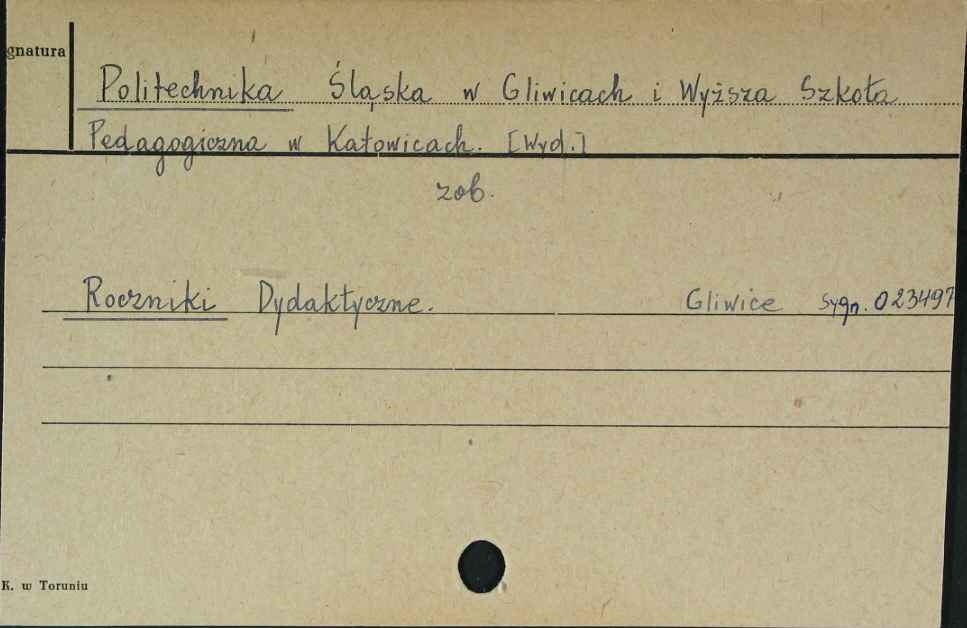 gnatura
Politechnika Śląska w Gliwicach i Wyższa Szkoła
Pedagogiczna w Katowicach. [Wyd.]
zob.
Roczniki Dydaktyczne. Gliwice Sygn. 023497
K. w Toruniu